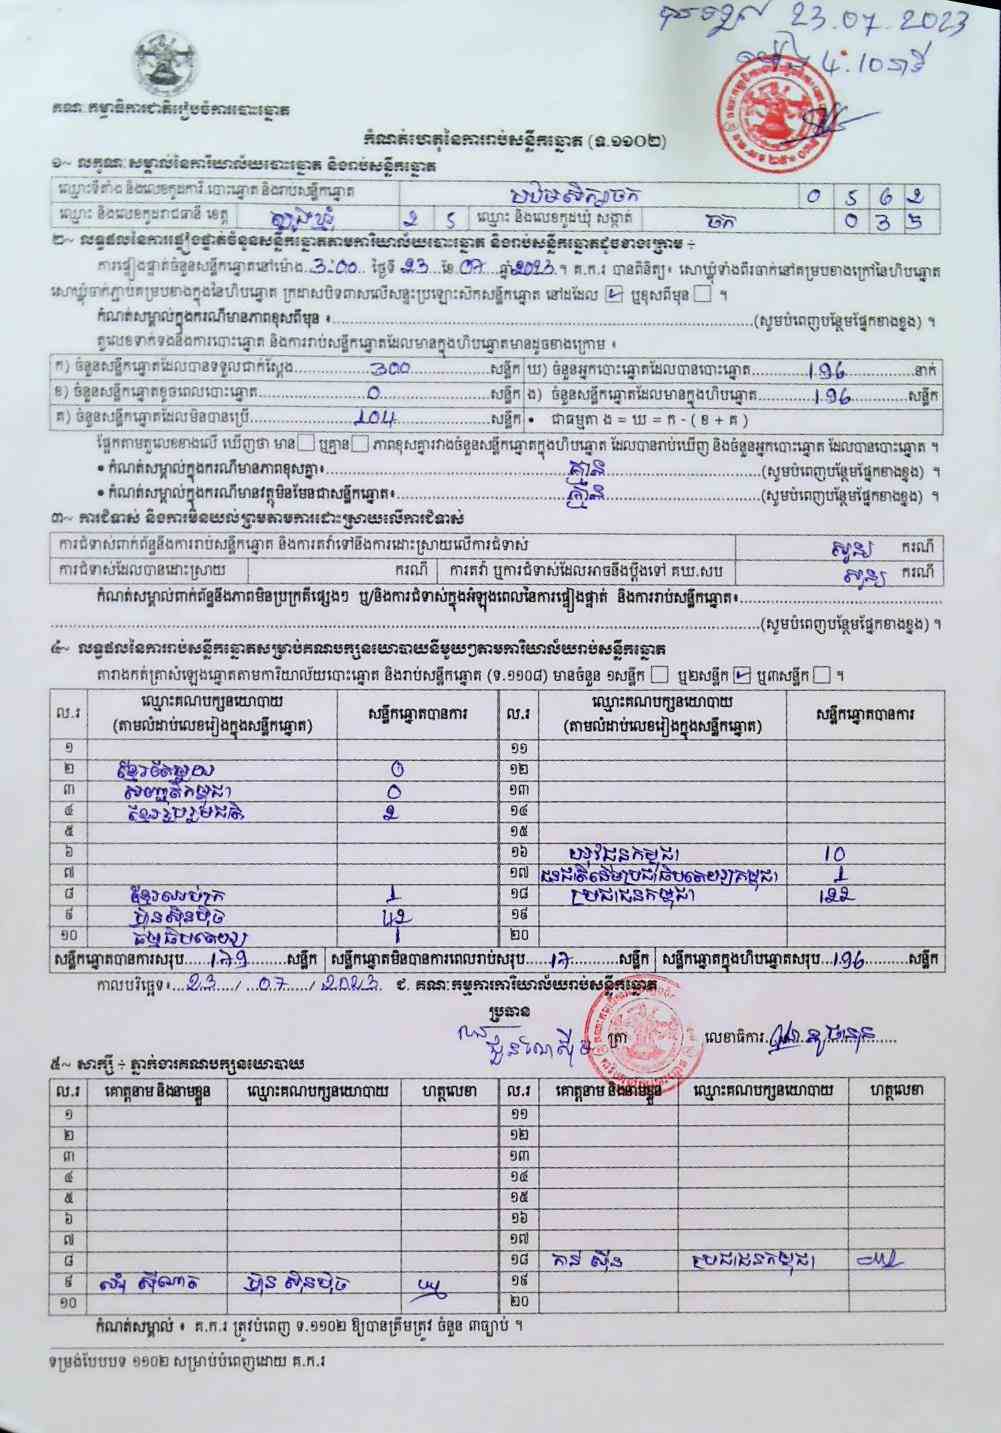 បានទទួល 23.07.2023
ម៉ោង 4:10នាទី
គណៈកម្មាធិការជាតិរៀបចំការបោះឆ្នោត
កំណត់ហេតុនៃការរាប់សន្លឹកឆ្នោត (ទ.១១០២)
១~ លក្ខណៈសម្គាល់នៃការិយាល័យបោះឆ្នោត និងរាប់សន្លឹកឆ្នោត
ឈ្មោះទីតាំង និងលេខកូដការិ.បោះឆ្នោត និងរាប់សន្លឹកឆ្នោត 0 5 6 2
ឈ្មោះ និងលេខកូដរាជធានី ខេត្ត ត្បូងឃ្មុំ 2 5 ឈ្មោះ និងលេខកូដឃុំ សង្កាត់ ចក 0 3 5
២~ លទ្ធផលនៃការផ្ទៀងផ្ទាត់ចំនួនសន្លឹកឆ្នោតតាមការិយាល័យបោះឆ្នោត និងរាប់សន្លឹកឆ្នោតដូចខាងក្រោម ÷
ការផ្ទៀងផ្ទាត់ចំនួនសន្លឹកឆ្នោតនៅម៉ោង..3:00.. ថ្ងៃទី 23..ខែ.07...ឆ្នាំ2023.។ គ.ក.រ បានពិនិត្យ៖ សោឃ្លុំទាំងពីរចាក់នៅគម្របខាងក្រៅនៃហិបឆ្នោត
សោឃ្លុំចាក់ភ្ជាប់គម្របខាងក្នុងនៃហិបឆ្នោត ក្រដាសបិទពាសលើសន្ទះប្រឡោះស៊កសន្លឹកឆ្នោត នៅដដែល ☑ ឬខុសពីមុន ☐ ។
កំណត់សម្គាល់ក្នុងករណីមានភាពខុសពីមុន ៖...........(សូមបំពេញបន្ថែមផ្នែកខាងខ្នង) ។
តួលេខទាក់ទងនឹងការបោះឆ្នោត និងការរាប់សន្លឹកឆ្នោតដែលមានក្នុងហិបឆ្នោតមានដូចខាងក្រោម ៖
ក) ចំនួនសន្លឹកឆ្នោតដែលបានទទួលជាក់ស្តែង......300......សន្លឹក ឃ) ចំនួនអ្នកបោះឆ្នោតដែលបានបោះឆ្នោត......196......នាក់
ខ) ចំនួនសន្លឹកឆ្នោតខូចពេលបោះឆ្នោត......0......សន្លឹក ង) ចំនួនសន្លឹកឆ្នោតដែលមានក្នុងហិបឆ្នោត......196......សន្លឹក
គ) ចំនួនសន្លឹកឆ្នោតដែលមិនបានប្រើ......104......សន្លឹក • ជាធម្មតា ង = ឃ = ក - ( ខ + គ )
ផ្អែកតាមតួលេខខាងលើ ឃើញថា មាន☐ ឬគ្មាន☐ ភាពខុសគ្នារវាងចំនួនសន្លឹកឆ្នោតក្នុងហិបឆ្នោត ដែលបានរាប់ឃើញ និងចំនួនអ្នកបោះឆ្នោត ដែលបានបោះឆ្នោត ។
• កំណត់សម្គាល់ក្នុងករណីមានភាពខុសគ្នា៖......គ្មាន......(សូមបំពេញបន្ថែមផ្នែកខាងខ្នង) ។
• កំណត់សម្គាល់ក្នុងករណីមានវត្ថុមិនមែនជាសន្លឹកឆ្នោត៖......គ្មាន......(សូមបំពេញបន្ថែមផ្នែកខាងខ្នង) ។
៣~ ការជំទាស់ និងការមិនយល់ព្រមតាមការដោះស្រាយលើការជំទាស់
ការជំទាស់ពាក់ព័ន្ធនឹងការរាប់សន្លឹកឆ្នោត និងការតវ៉ាទៅនឹងការដោះស្រាយលើការជំទាស់ សូន្យ ករណី
ការជំទាស់ដែលបានដោះស្រាយ ករណី ការតវ៉ា ឬការជំទាស់ដែលអាចនឹងប្តឹងទៅ គឃ.សប សូន្យ ករណី
កំណត់សម្គាល់ពាក់ព័ន្ធនឹងភាពមិនប្រក្រតីផ្សេងៗ ឬ/និងការជំទាស់ក្នុងអំឡុងពេលនៃការផ្ទៀងផ្ទាត់ និងការរាប់សន្លឹកឆ្នោត៖......
......(សូមបំពេញបន្ថែមផ្នែកខាងខ្នង) ។
៤~ លទ្ធផលនៃការរាប់សន្លឹកឆ្នោតសម្រាប់គណបក្សនយោបាយនីមួយៗតាមការិយាល័យរាប់សន្លឹកឆ្នោត
តារាងកត់ត្រាសំឡេងឆ្នោតតាមការិយាល័យបោះឆ្នោត និងរាប់សន្លឹកឆ្នោត (ទ.១១០៨) មានចំនួន ១សន្លឹក ☐ ឬ២សន្លឹក ☑ ឬ៣សន្លឹក ☐ ។
ល.រ ឈ្មោះគណបក្សនយោបាយ (តាមលំដាប់លេខរៀងក្នុងសន្លឹកឆ្នោត) សន្លឹកឆ្នោតបានការ ល.រ ឈ្មោះគណបក្សនយោបាយ (តាមលំដាប់លេខរៀងក្នុងសន្លឹកឆ្នោត) សន្លឹកឆ្នោតបានការ
១ ១១
២ ខ្មែរតែមួយ 0 ១២
៣ សញ្ជាតិកម្ពុជា 0 ១៣
៤ ខ្មែររួបរួមជាតិ 2 ១៤
៥ ១៥
៦ ១៦ យុវជនកម្ពុជា 10
៧ ១៧ ជនជាតិដើមប្រជាធិបតេយ្យកម្ពុជា 1
៨ 1 ១៨ ប្រជាជនកម្ពុជា 122
៩ ហ៊្វុនស៊ិនប៉ិច 42 ១៩
១០ ធម្មាធិបតេយ្យ 1 ២០
សន្លឹកឆ្នោតបានការសរុប....179....សន្លឹក សន្លឹកឆ្នោតមិនបានការពេលរាប់សរុប....17....សន្លឹក សន្លឹកឆ្នោតក្នុងហិបឆ្នោតសរុប...196....សន្លឹក
កាលបរិច្ឆេទ៖...23..../...07..../ 2023. ជ. គណៈកម្មការការិយាល័យរាប់សន្លឹកឆ្នោត
ប្រធាន
ត្រា លេខាធិការ
៥~ សាក្សី ÷ ភ្នាក់ងារគណបក្សនយោបាយ
ល.រ គោត្តនាម និងនាមខ្លួន ឈ្មោះគណបក្សនយោបាយ ហត្ថលេខា ល.រ គោត្តនាម និងនាមខ្លួន ឈ្មោះគណបក្សនយោបាយ ហត្ថលេខា
១ ១១
២ ១២
៣ ១៣
៤ ១៤
៥ ១៥
៦ ១៦
៧ ១៧
៨ ១៨ កាន់ ស៊ីន ប្រជាជនកម្ពុជា
៩ ហ៊្វុន ស៊ិនប៉ិច ១៩
១០ ២០
កំណត់សម្គាល់ ៖ គ.ក.រ ត្រូវបំពេញ ទ.១១០២ ឱ្យបានត្រឹមត្រូវ ចំនួន ៣ច្បាប់ ។
ទម្រង់បែបបទ ១១០២ សម្រាប់បំពេញដោយ គ.ក.រ